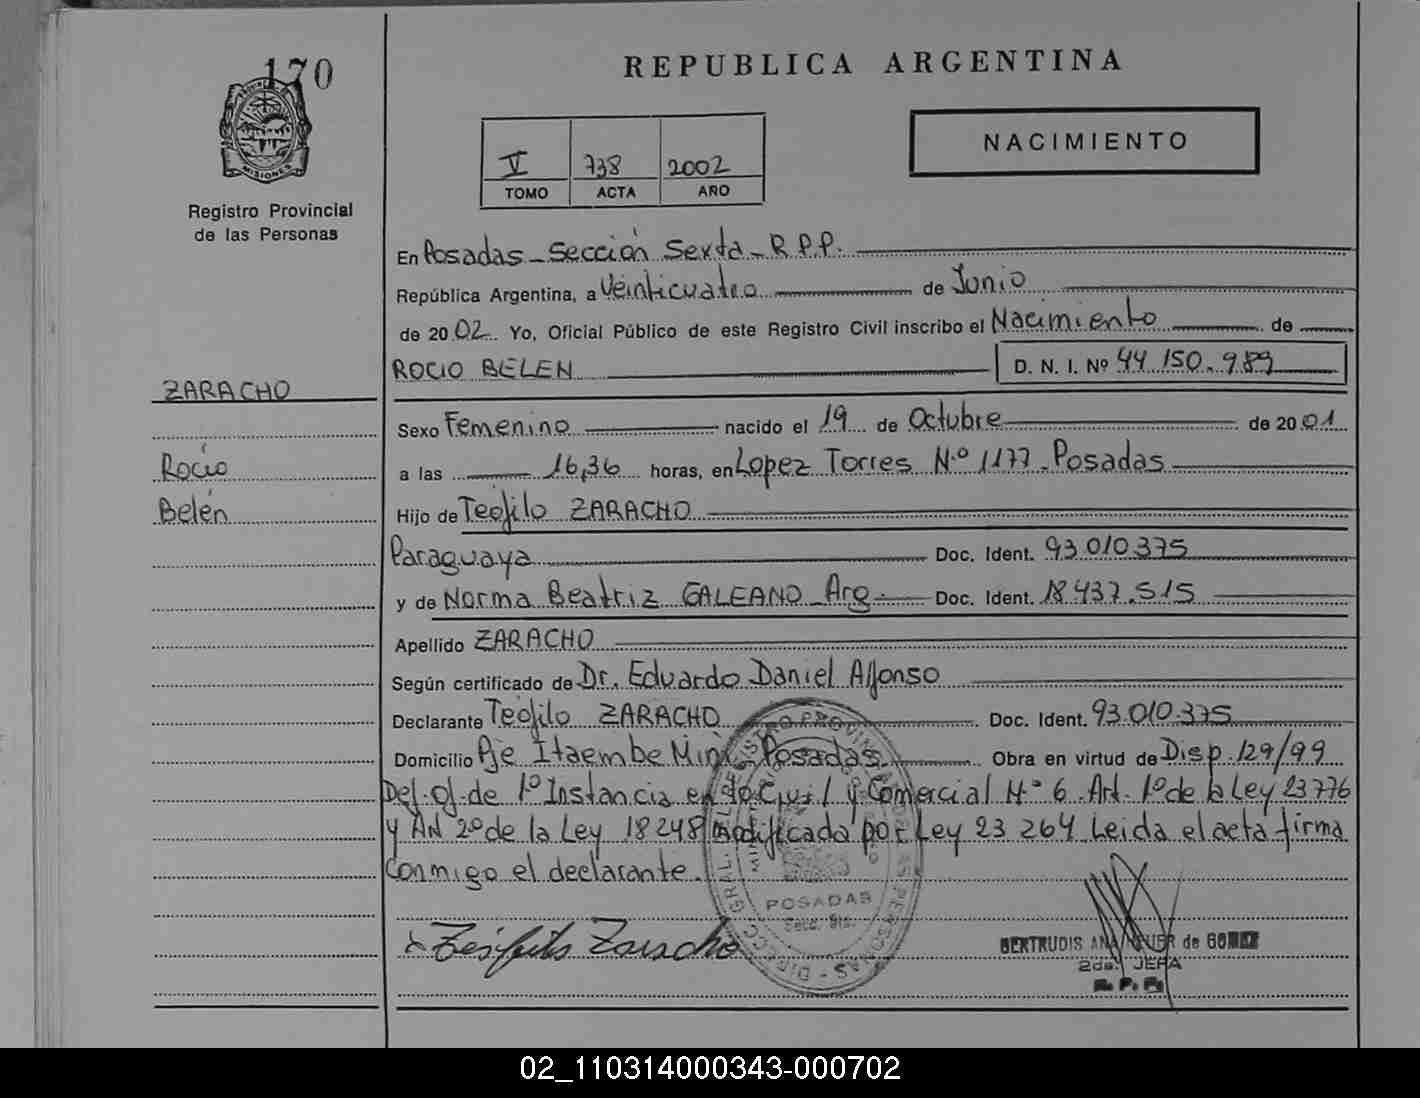 170
MISIONES
Registro Provincial
de las Personas
ZARACHO
Rocío
Belén
REPUBLICA ARGENTINA
V 738 2002
TOMO ACTA AÑO
NACIMIENTO
En Posadas - Sección Sexta - R.P.P.
República Argentina, a Veinticuatro de Junio
de 2002. Yo, Oficial Público de este Registro Civil inscribo el Nacimiento de
ROCIO BELEN D. N. I. Nº 44.150.989
Sexo Femenino nacido el 19 de Octubre de 2001
a las 16,36 horas, en Lopez Torres N.º 1177 - Posadas
Hijo de Teófilo ZARACHO
Paraguaya Doc. Ident. 93.010.375
y de Norma Beatriz GALEANO - Arg. Doc. Ident. 18.437.515
Apellido ZARACHO
Según certificado de Dr. Eduardo Daniel Alfonso
Declarante Teófilo ZARACHO Doc. Ident. 93.010.375
Domicilio Aje Itaembe Mini - Posadas Obra en virtud de Disp. 129/99
Def. of. de 1º Instancia en lo Civil y Comercial Nº 6 Art. 1º de la Ley 23776
y Art 2º de la Ley 18248 modificada por Ley 23.264. Leida el acta firma
conmigo el declarante.
POSADAS
Secc. 6ta.
GERTRUDIS ANA de GOMEZ
2da. JEFA
R. P. P.
02_110314000343-000702